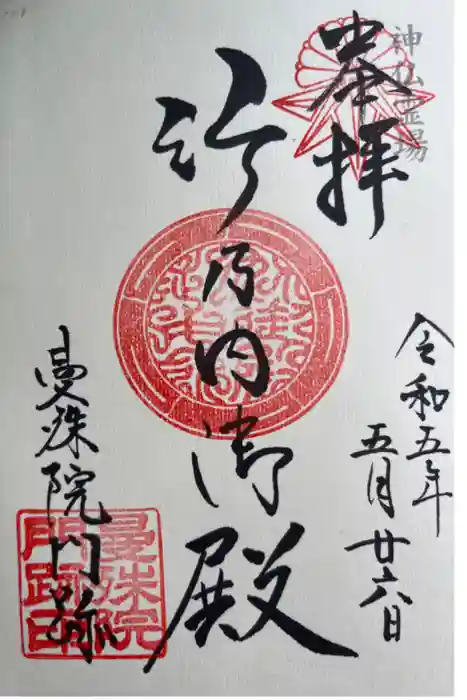 神仏霊場
奉拝
令和五年
五月廿六日
竹乃内御殿
曼殊院門跡
曼殊院
門跡印